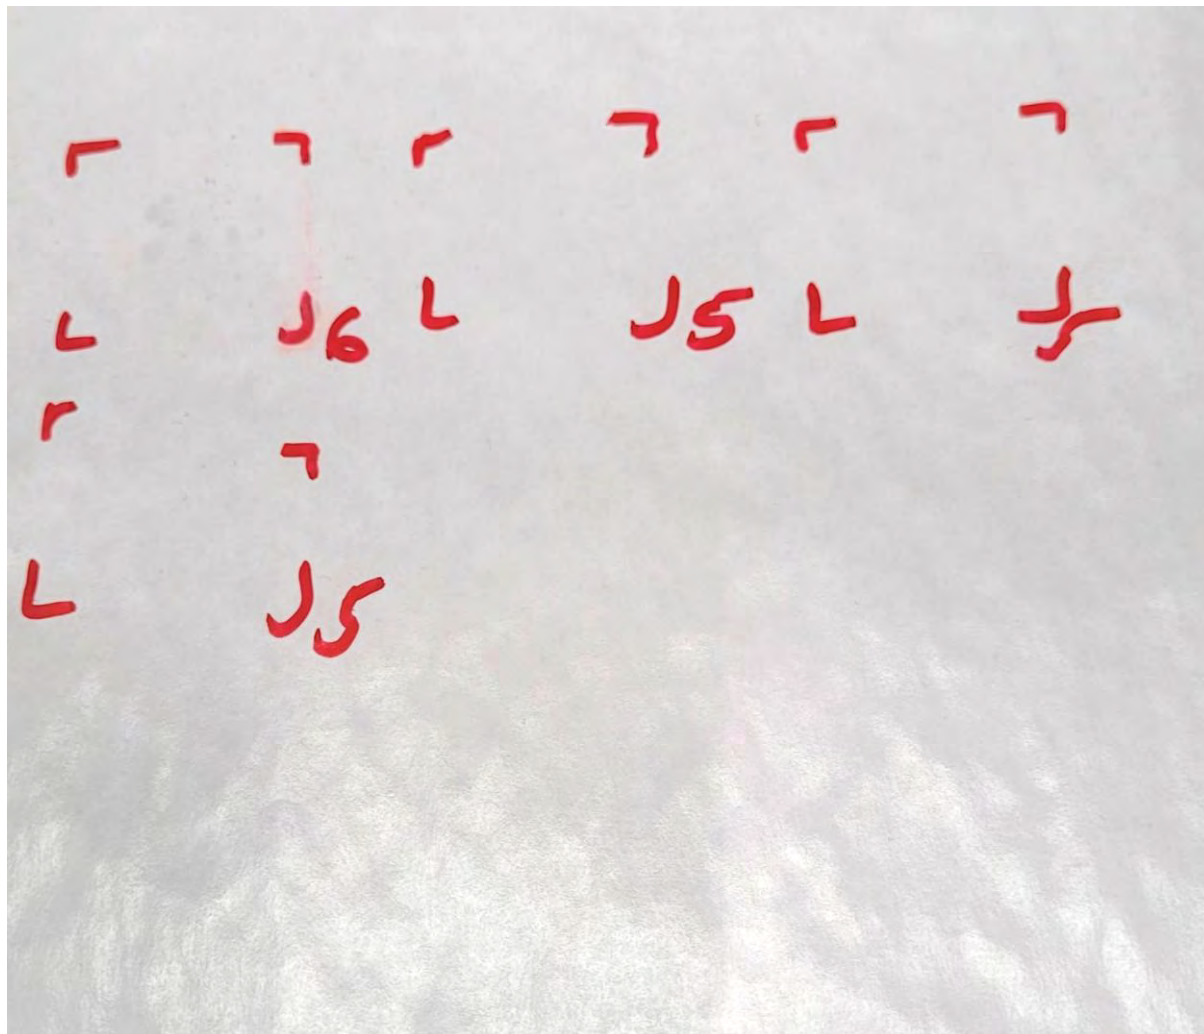 6 5 5
5